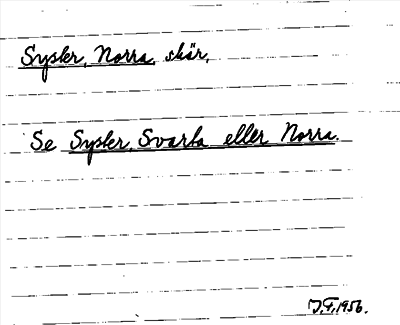 Sysler, Norra, skär.
Se Sysler, Svarta eller Norra.
J.F. 1956.